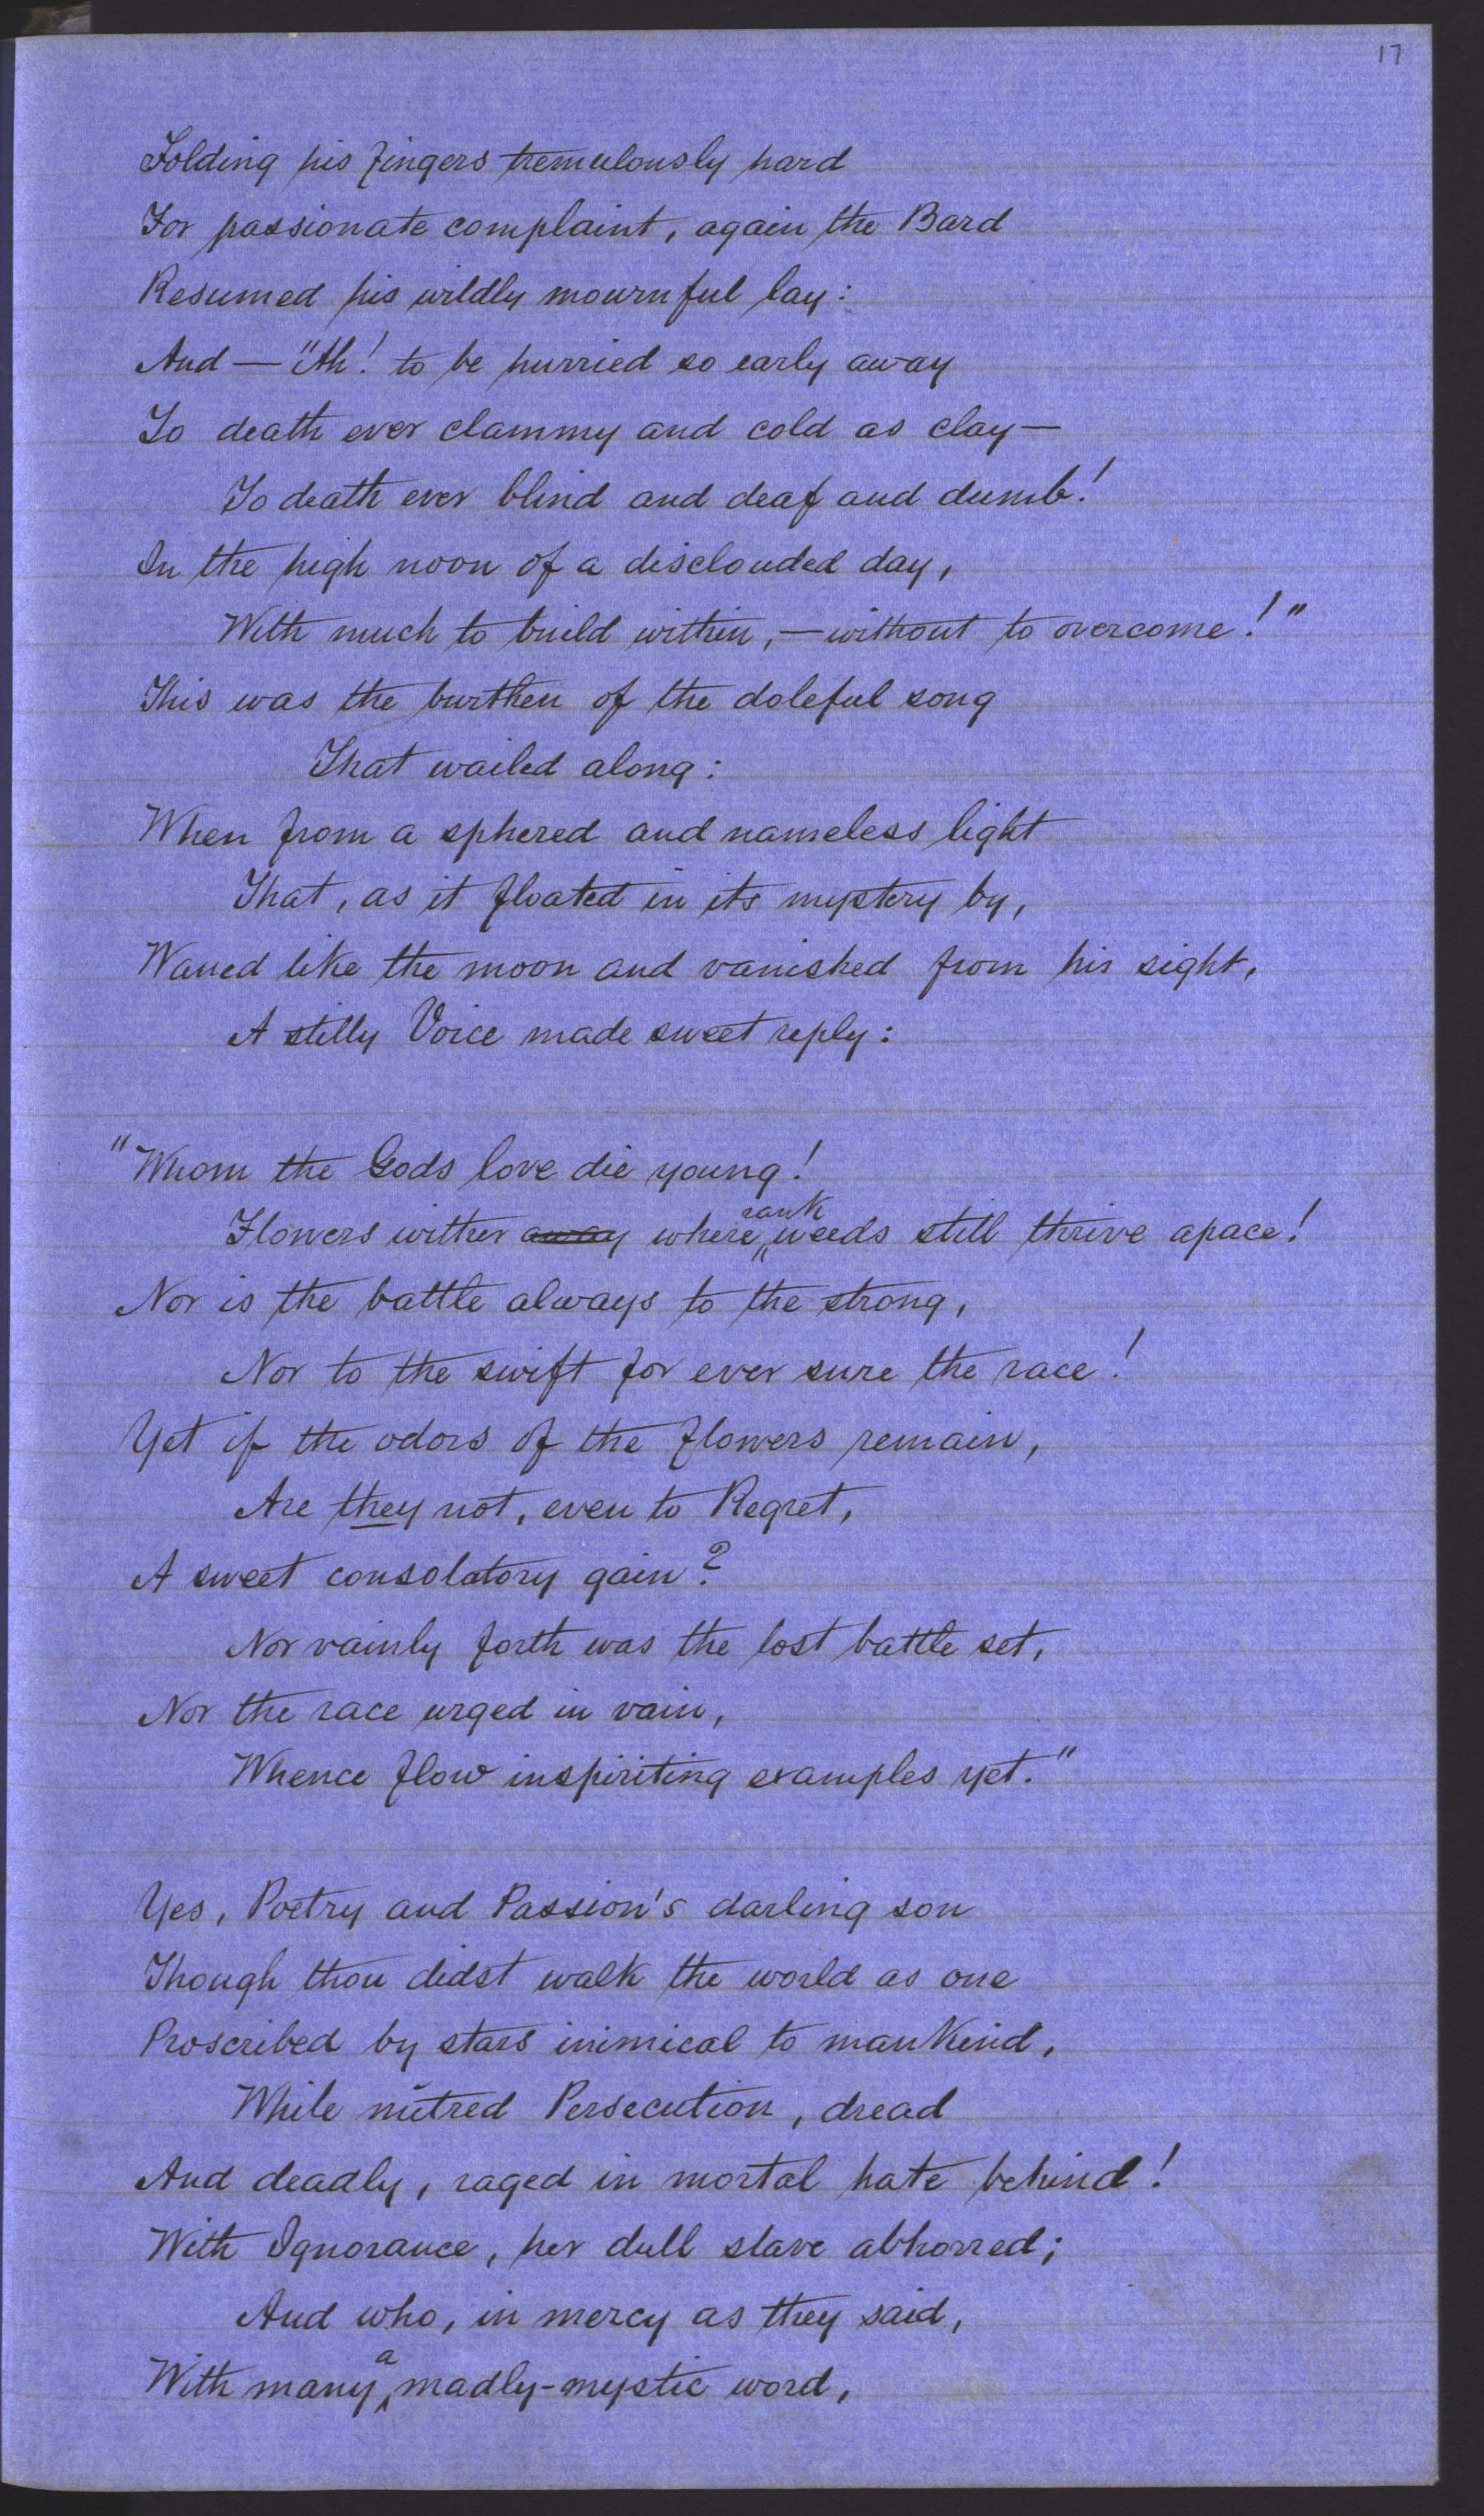 17
Folding his fingers tremulously hard
For passionate complaint, again the Bard
Resumed his wildly mournful lay:
And — "Ah! to be hurried so early away
To death ever clammy and cold as clay —
To death ever blind and deaf and dumb!
In the high noon of a disclouded day,
With much to build within, — without to overcome!"
This was the burthen of the doleful song
That wailed along:
When from a sphered and nameless light
That, as it floated in its mystery by,
Waned like the moon and vanished from his sight,
A stilly Voice made sweet reply:
"Whom the Gods love die young!
Flowers wither away where rank weeds still thrive apace!
Nor is the battle always to the strong,
Nor to the swift for ever sure the race!
Yet if the odors of the flowers remain,
Are they not, even to Regret,
A sweet consolatory gain?
Nor vainly forth was the lost battle set,
Nor the race urged in vain,
Whence flow inspiriting examples yet."
Yes, Poetry and Passion's darling son
Though thou didst walk the world as one
Proscribed by stars inimical to mankind,
While mitred Persecution, dread
And deadly, raged in mortal hate behind!
With Ignorance, her dull slave abhorred;
And who, in mercy as they said,
With many a madly-mystic word,